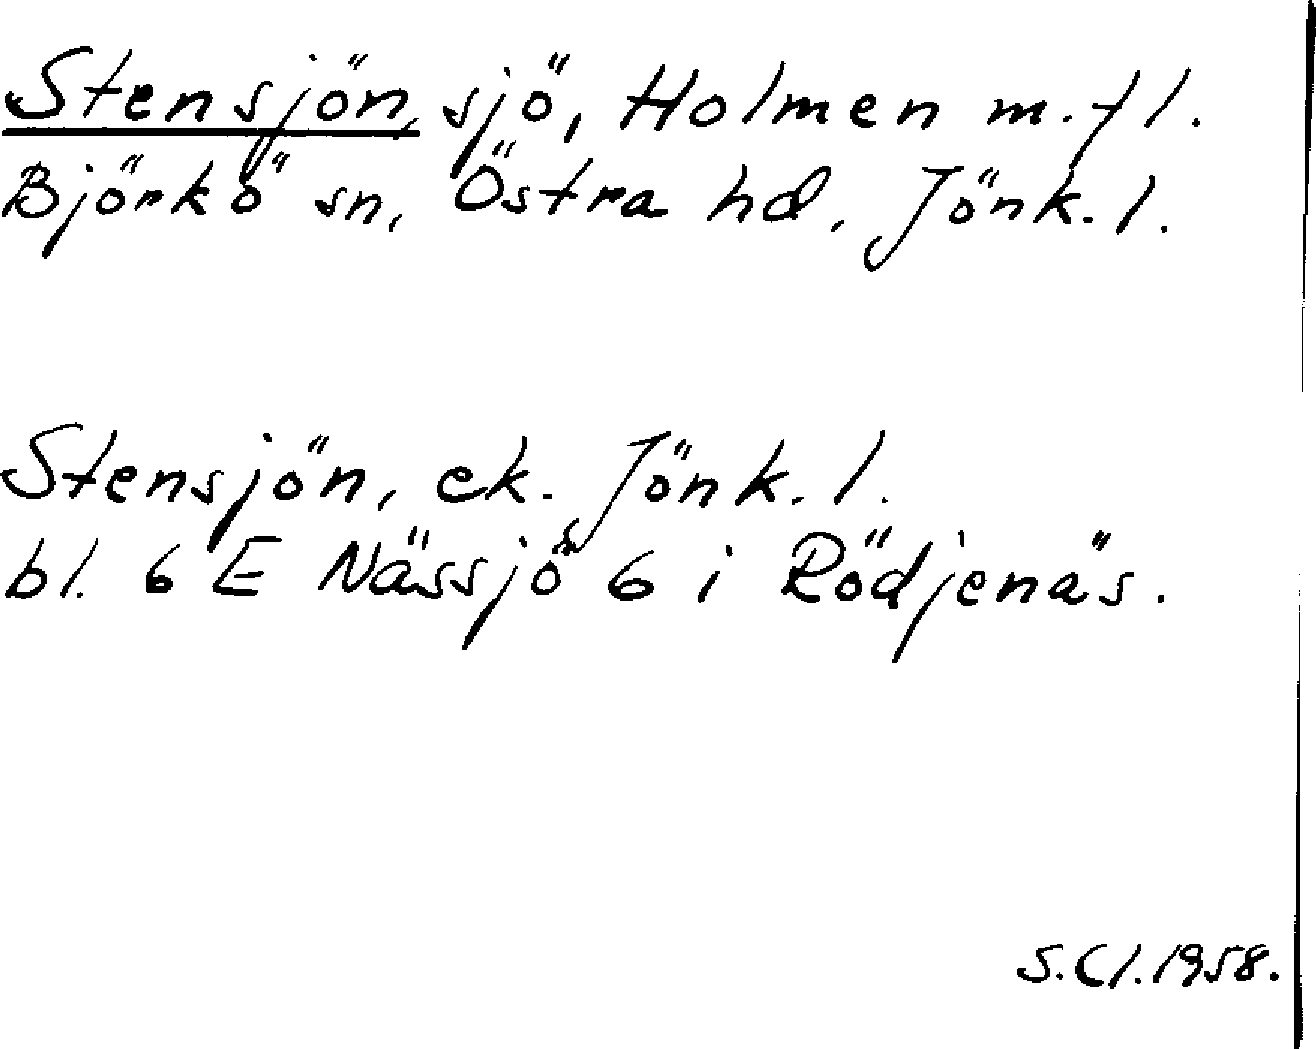 Stensjön, sjö, Holmen m.fl.
Björkö sn, Östra hd, Jönk. l.
Stensjön, ek. Jönk. l.
bl. 6 E Nässjö 6 i Rödjenäs.
S.Cl.1958.